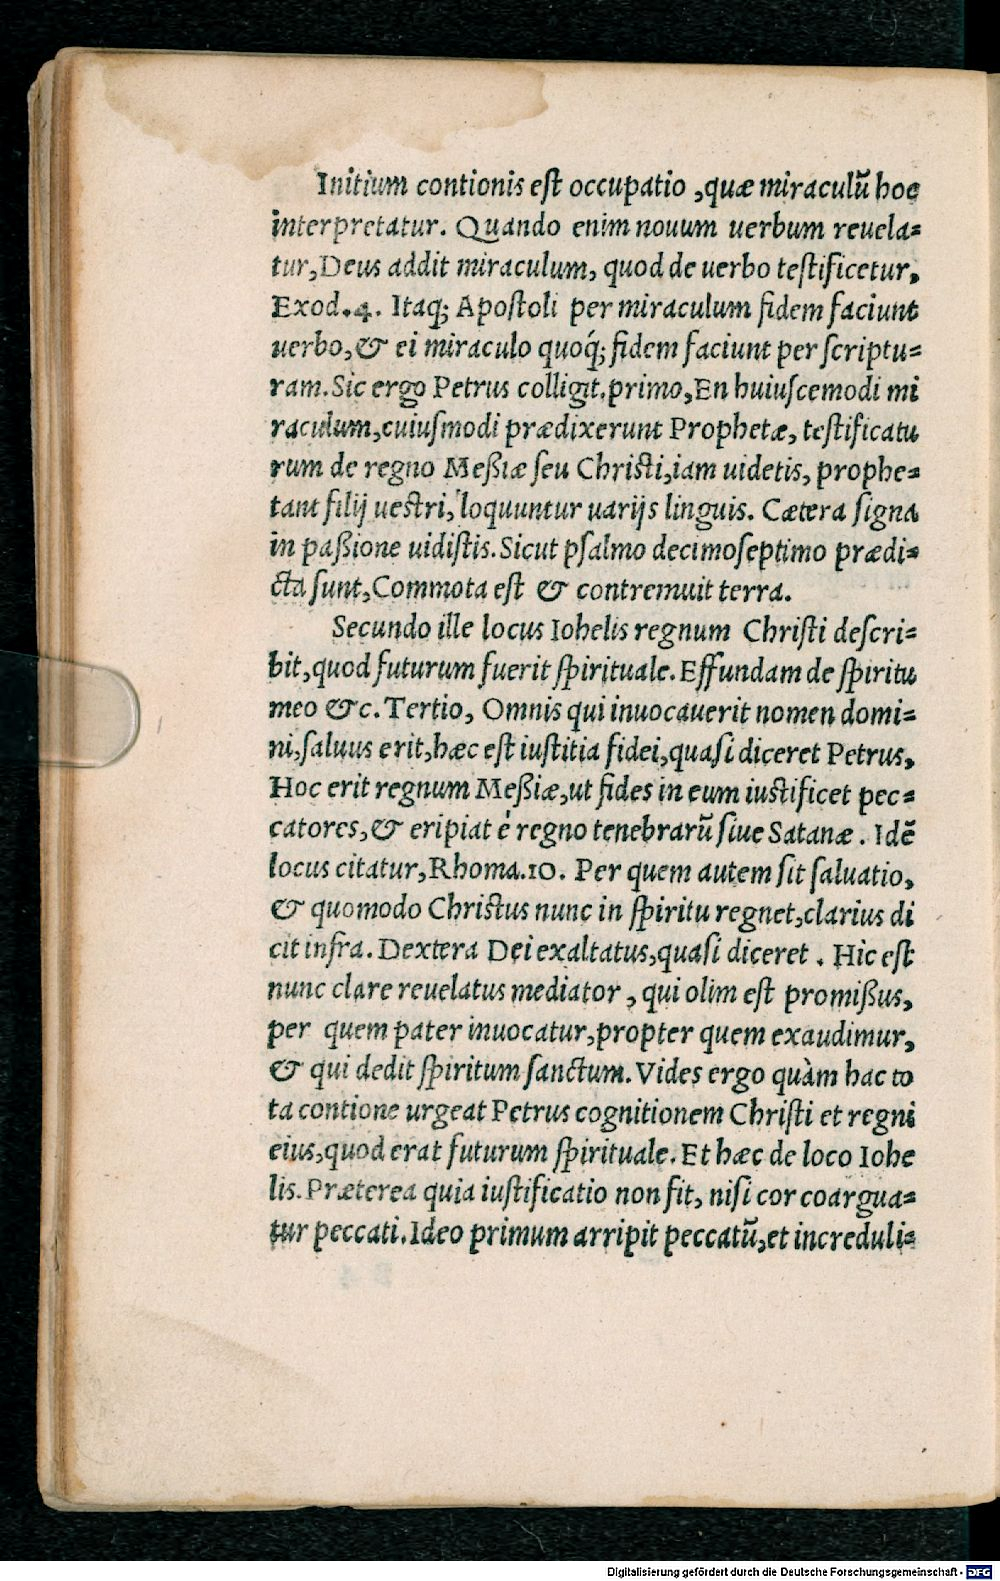 Initium contionis eſt occupatio, quæ miraculũ hoc
interpretatur. Quando enim nouum uerbum reuela=
tur, Deus addit miraculum, quod de uerbo teſtificetur,
Exod. 4. Itaq; Apoſtoli per miraculum fidem faciunt
uerbo, & ei miraculo quoq́; fidem faciunt per ſcriptu=
ram. Sic ergo Petrus colligit. primo, En huiuſcemodi mi
raculum, cuiuſmodi prædixerunt Prophetæ, teſtificatu
rum de regno Meßiæ ſeu Chriſti, iam uidetis, prophe=
tant filij ueſtri, loquuntur uarijs linguis. Cætera ſigna
in paßione uidiſtis. Sicut pſalmo decimoſeptimo prædi=
cta ſunt, Commota eſt & contremuit terra.
Secundo ille locus Iohelis regnum Chriſti deſcri=
bit, quod futurum fuerit ſpirituale. Effundam de ſpiritu
meo &c. Tertio, Omnis qui inuocauerit nomen domi=
ni, ſaluus erit, hæc eſt iuſtitia fidei, quaſi diceret Petrus,
Hoc erit regnum Meßiæ, ut fides in eum iuſtificet pec=
catores, & eripiat è regno tenebrarũ ſiue Satanæ. Idẽ
locus citatur, Rhoma. 10. Per quem autem ſit ſaluatio,
& quomodo Chriſtus nunc in ſpiritu regnet, clarius di
cit infra. Dextera Dei exaltatus, quaſi diceret. Hic eſt
nunc clare reuelatus mediator, qui olim eſt promißus,
per quem pater inuocatur, propter quem exaudimur,
& qui dedit ſpiritum ſanctum. Vides ergo quàm hac to
ta contione urgeat Petrus cognitionem Chriſti et regni
eius, quod erat futurum ſpirituale. Et hæc de loco Iohe
lis. Præterea quia iuſtificatio non fit, niſi cor coargua=
tur peccati. Ideo primum arripit peccatũ, et increduli=
Digitalisierung gefördert durch die Deutsche Forschungsgemeinschaft - DFG